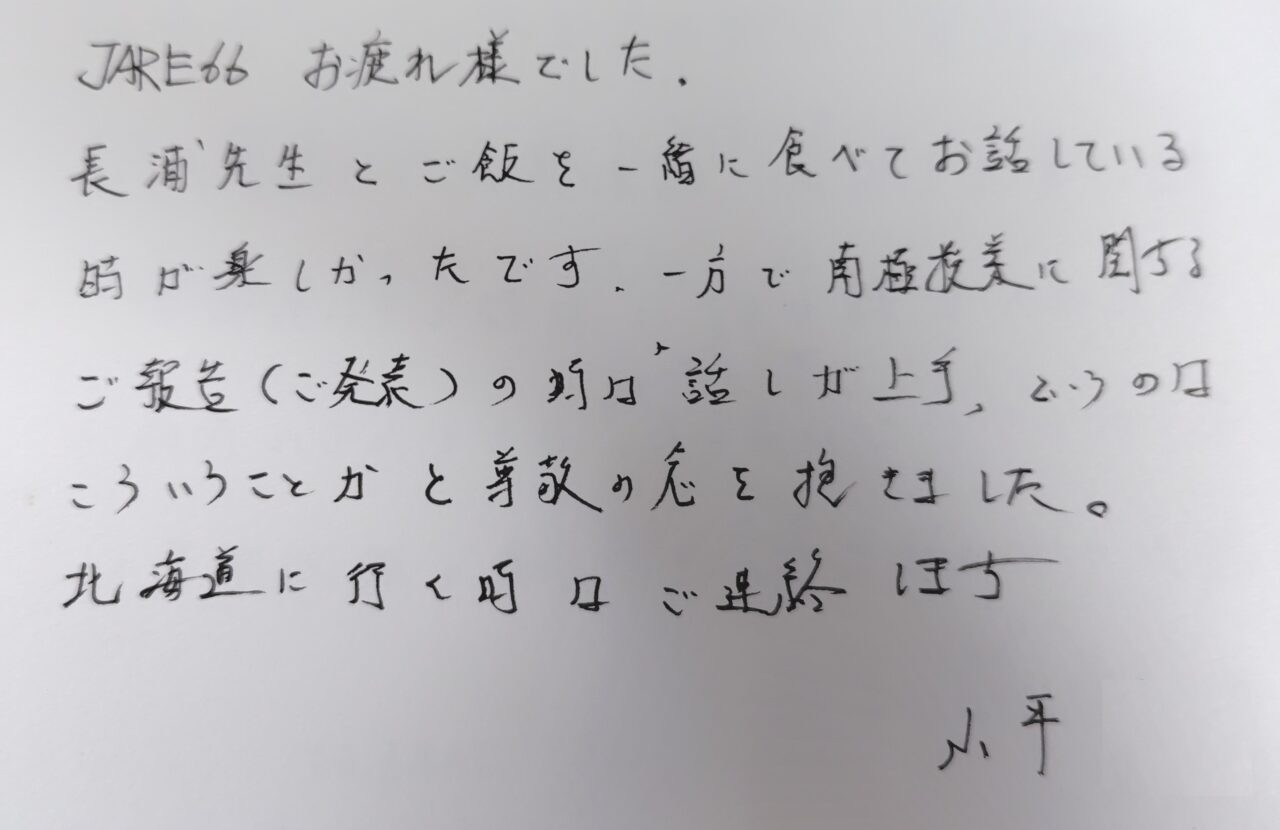 JARE66 お疲れ様でした.
長浦先生とご飯を一緒に食べてお話している
時が楽しかったです. 一方で南極授業に関する
ご報告(ご発表)の時は"話しが上手、というのは
こういうことかと尊敬の念を抱きました。
北海道に行く時はご連絡します
小平